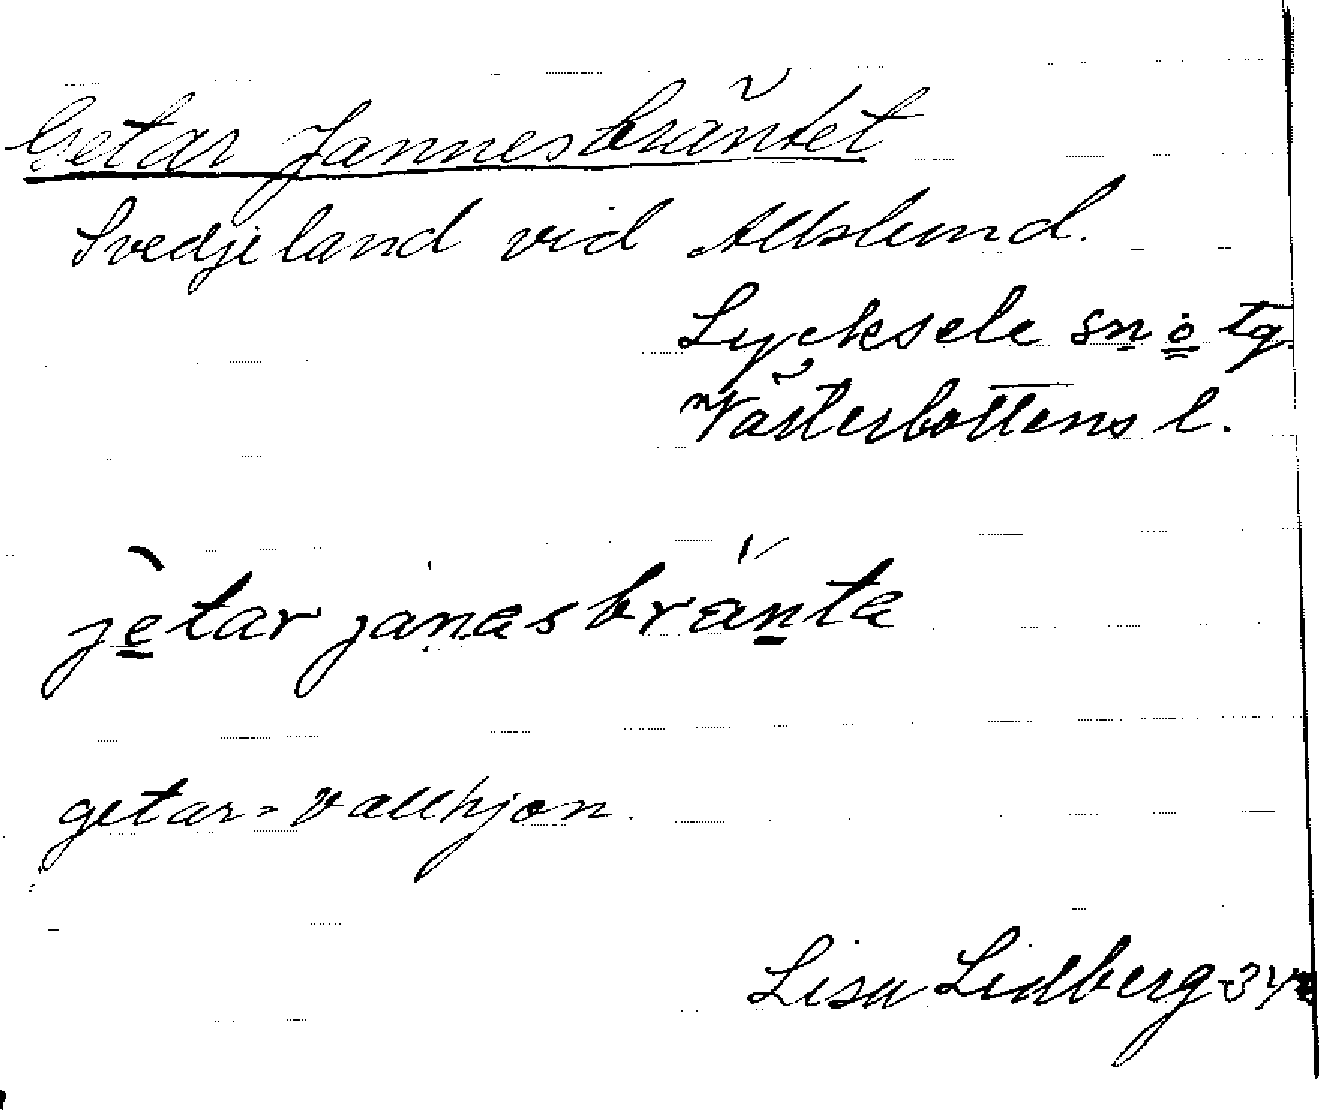 Getar Jannesbräntet
Svedjeland vid Allslund.
Lycksele sn o tg.
Västerbottens l.
jetar janasbränta
getar = vallhjon.
Lisa Lidberg 34